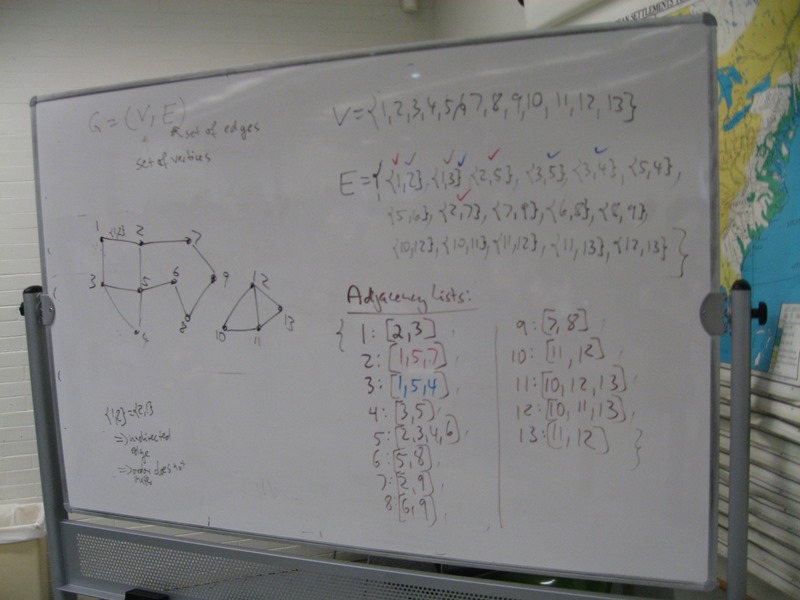 G = (V, E)
set of edges
set of vertices
V = {1,2,3,4,5,6,7,8,9,10, 11, 12, 13}
E = { {1,2}, {1,3}, {2,5}, {3,5}, {3,4}, {5,4},
{5,6}, {2,7}, {7,9}, {6,8}, {8,9},
{10,12}, {10,11}, {11,12}, {11,13}, {12,13} }
1 {1,2} 2 7
3 5 6 9 12
4 8 10 11 13
Adjacency Lists:
{ 1: [2,3],
2: [1,5,7],
3: [1,5,4],
4: [3,5],
5: [2,3,4,6],
6: [5,8],
7: [2,9],
8: [6,9],
9: [7,8],
10: [11, 12],
11: [10, 12, 13],
12: [10, 11, 13],
13: [11, 12] }
=> undirected
edge
=> order does not